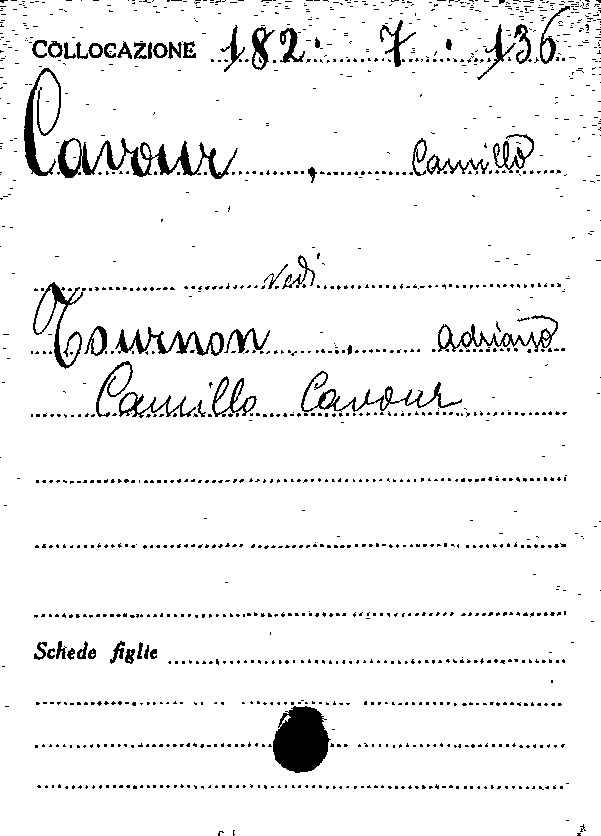 COLLOCAZIONE 182. 7. 136
Cavour, Camillo
vedi
Tournon, Adriano
Camillo Cavour
Schede figlie